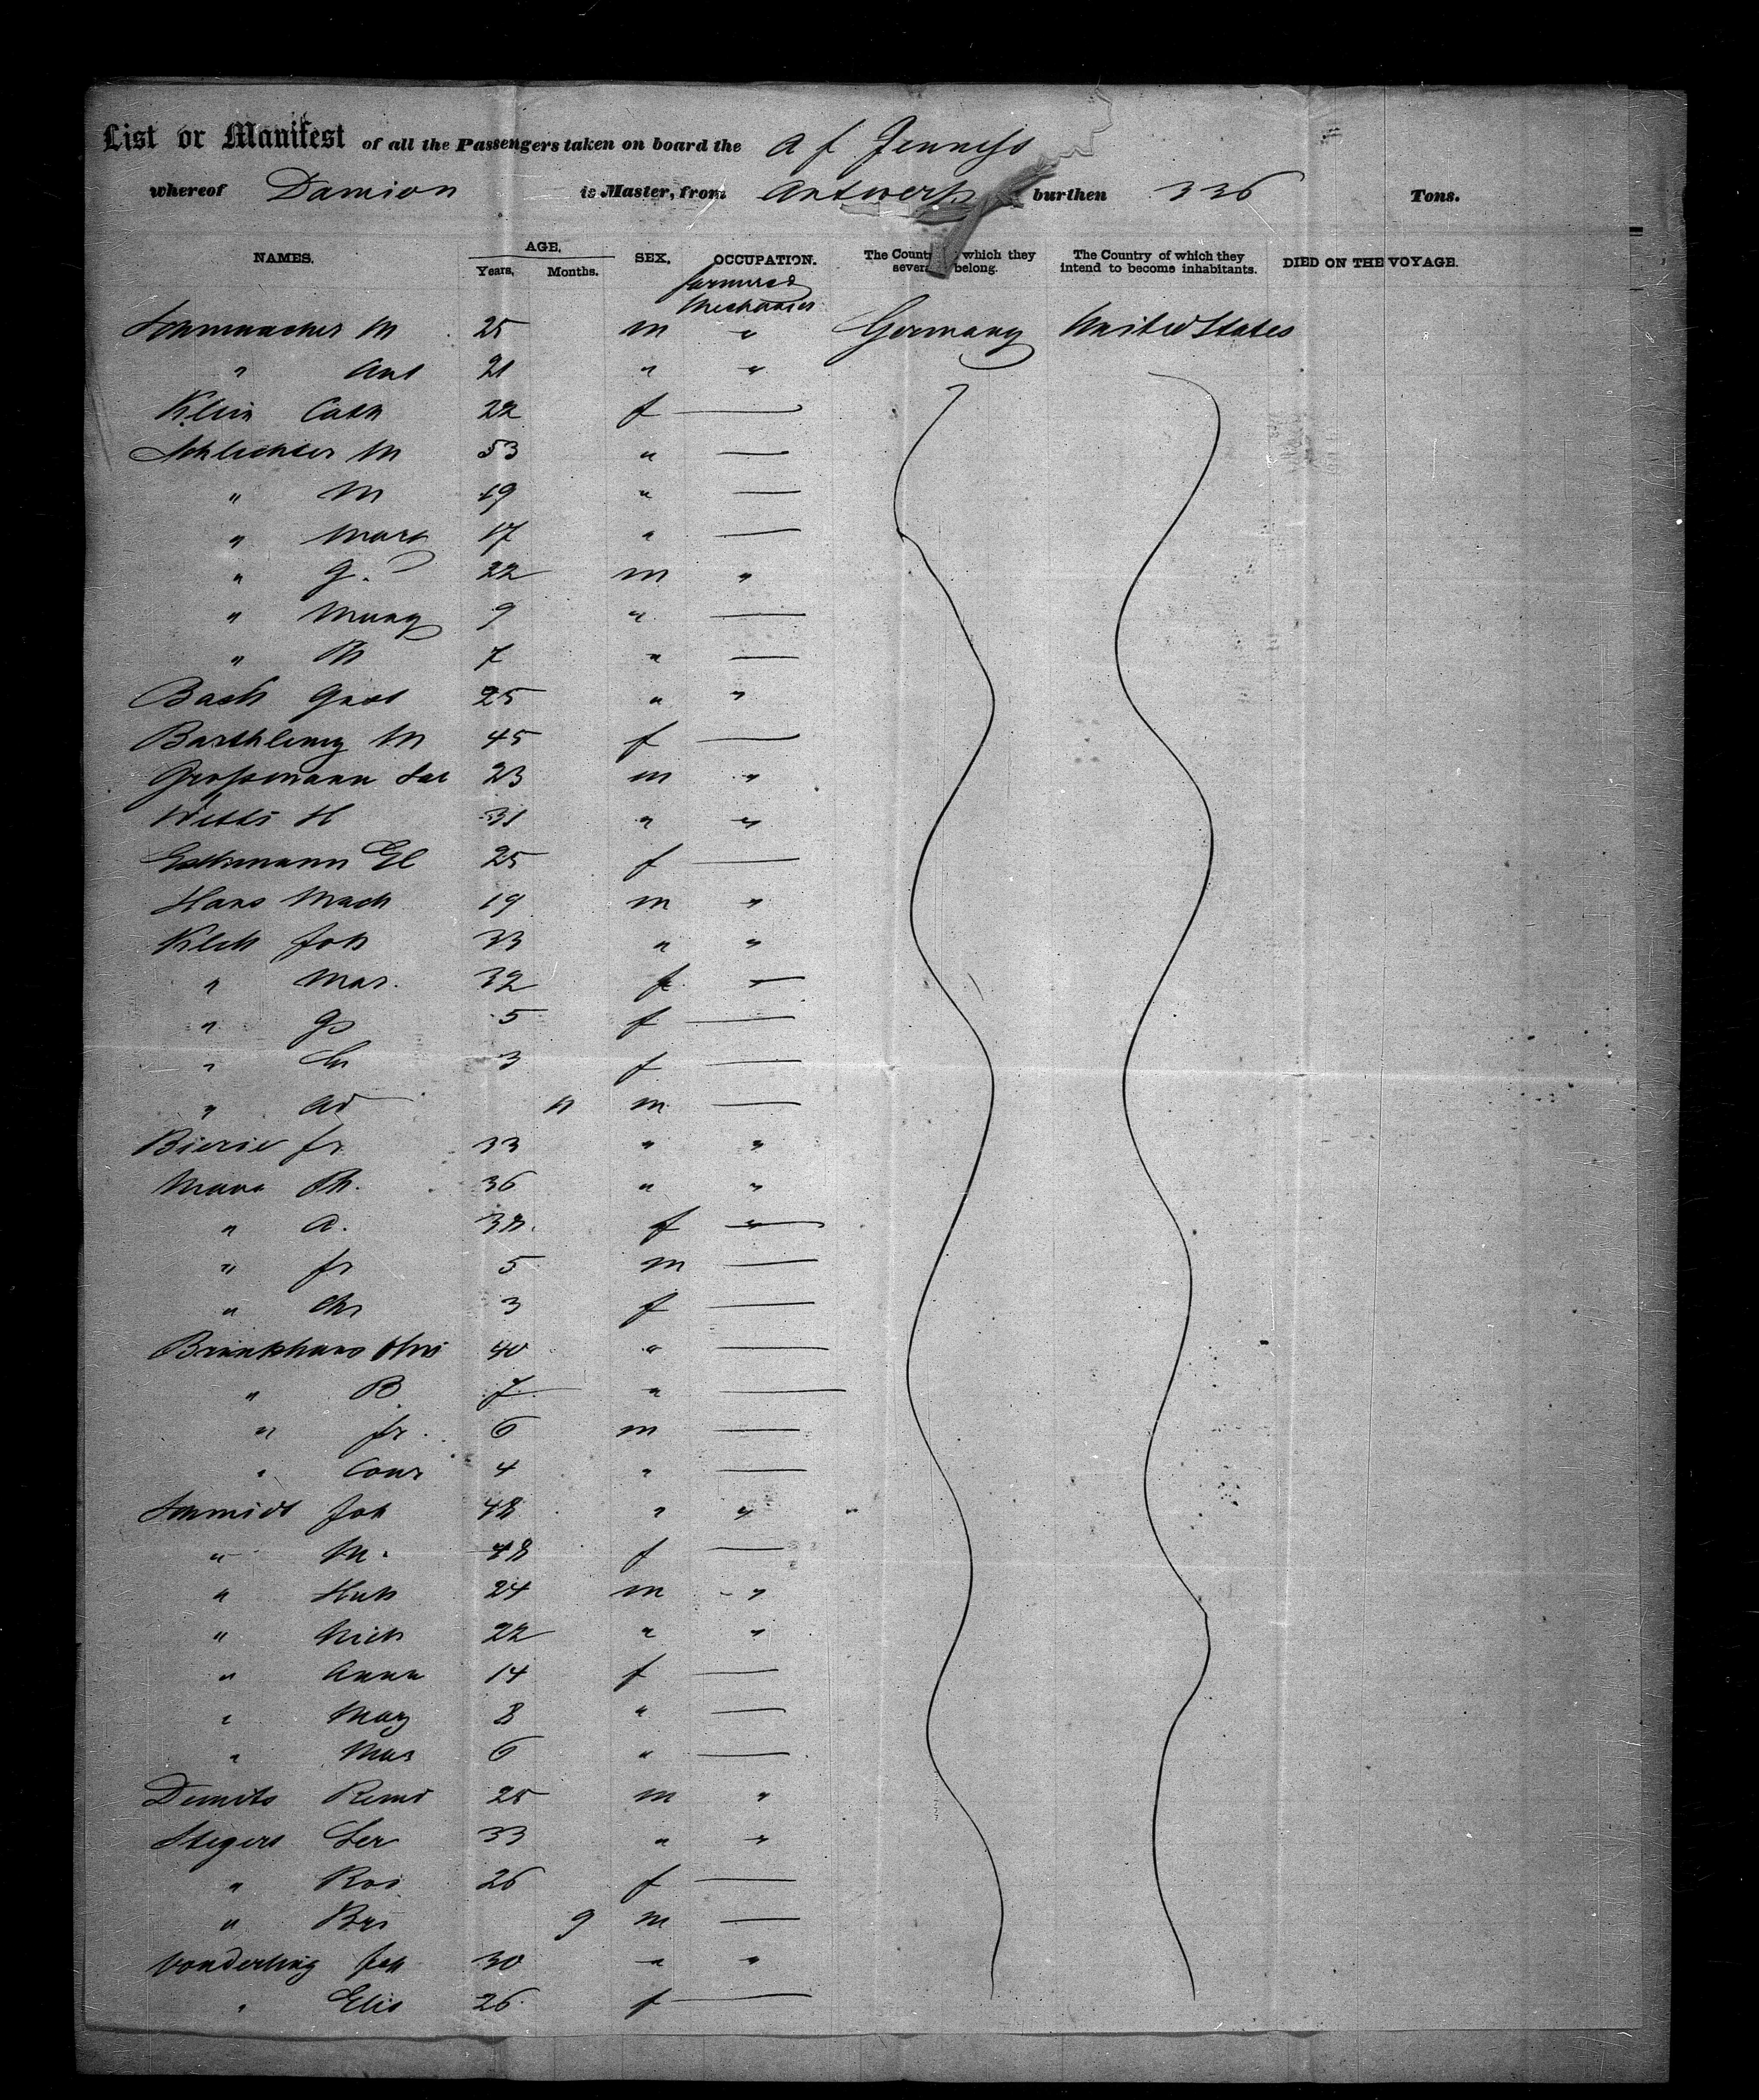 List or Manifest of all the Passengers taken on board the A f Jenness
whereof Damion is Master, from Antwerp burthen 336 Tons.
NAMES. AGE. Years, Months. SEX. OCCUPATION. The Country which they several belong. The Country of which they intend to become inhabitants. DIED ON THE VOYAGE.
farmers &
Mechanics
Schumacher M 25 m " Germany United States
" Ant 21 " "
Klein Cath 22 f —
Schlichter M 53 " —
" M 19 " —
" Marg 17 " —
" G. 22 m "
" 9 " —
" Ph 7 " —
Bach 25 " "
Barthlemy M 45 f —
Grossmann 23 m "
H 31 " "
El 25 f —
Hans Mach 19 m "
Joh 33 " "
" Mar. 32 f —
" 5 f —
" Ch 3 f —
" Ad m —
fr 33 " "
Ph. 36 " "
" A. 38. f —
" fr 5 m —
" Chr 3 f —
Brinkhaus 40 " —
" B 7 " —
" fr. 6 m —
" Conr 4 " —
Schmidt Joh 48 " "
" M. 48 f —
" 24 m "
" Nich 22 " "
" Anna 14 f —
" May 8 " —
" Mar 6 " —
Remi 25 m "
Stegers 33 " "
" Ros 26 f —
" 9 m —
Vonderling Joh 30 " "
" Elis 26 f —